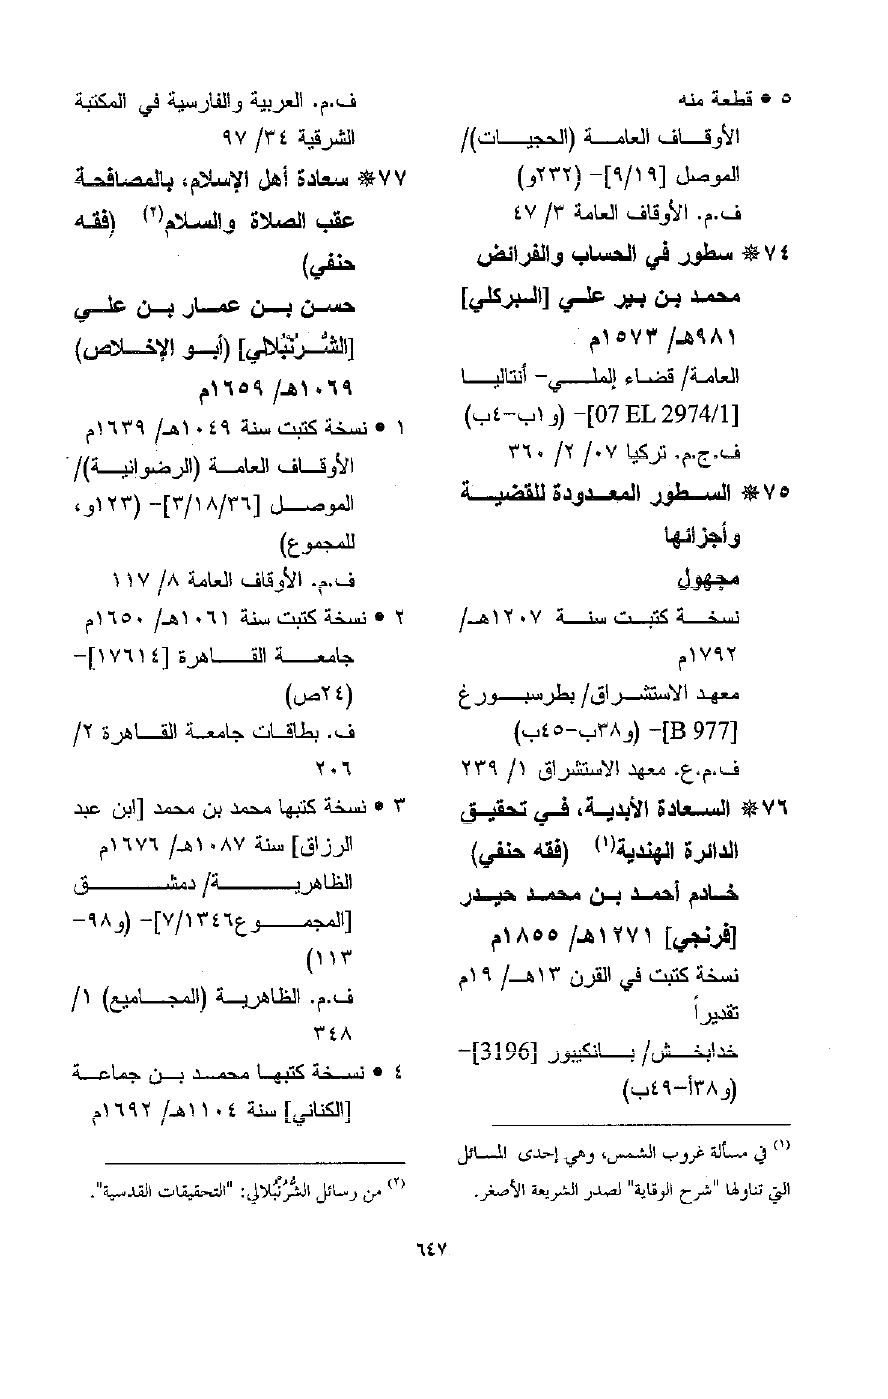 ٥ • قطعة منه
الأوقاف العامة (الحجيات)/
الموصل [٩/١٩]- (٢٣٢و)
ف.م. الأوقاف العامة ٣/ ٤٧
٧٤* سطور في الحساب والفرائض
محمد بن بير علي [البركلي]
٩٨١هـ/ ١٥٧٣م
العامة/ قضاء إلملي- أنتاليا
[07 EL 2974/1]- (و١ب-٤ب)
ف.ج.م. تركيا ٠٧/ ٢/ ٣٦٠
٧٥* السطور المعدودة للقضية
وأجزائها
مجهول
نسخة كتبت سنة ١٢٠٧هـ/
١٧٩٢م
معهد الاستشراق/ بطرسبورغ
[B 977]- (و٣٨ب-٤٥ب)
ف.م.ع. معهد الاستشراق ١/ ٢٣٩
٧٦* السعادة الأبدية، في تحقيق
الدائرة الهندية(١) (فقه حنفي)
خادم أحمد بن محمد حيدر
[فرنجي] ١٢٧١هـ/ ١٨٥٥م
نسخة كتبت في القرن ١٣هـ/ ١٩م
تقديراً
خدابخش/ بانكيبور [3196]-
(و٣٨أ-٤٩ب)
(١) في مسألة غروب الشمس، وهي إحدى المسائل
التي تناولها "شرح الوقاية" لصدر الشريعة الأصغر.
ف.م. العربية والفارسية في المكتبة
الشرقية ٣٤/ ٩٧
٧٧* سعادة أهل الإسلام، بالمصافحة
عقب الصلاة والسلام(٢) (فقه
حنفي)
حسن بن عمار بن علي
[الشُّرُنْبُلالي] (أبو الإخلاص)
١٠٦٩هـ/ ١٦٥٩م
١ • نسخة كتبت سنة ١٠٤٩هـ/ ١٦٣٩م
الأوقاف العامة (الرضوانية)/
الموصل [٣/١٨/٣٦]- (١٢٣و،
للمجموع)
ف.م. الأوقاف العامة ٨/ ١١٧
٢ • نسخة كتبت سنة ١٠٦١هـ/ ١٦٥٠م
جامعة القاهرة [١٧٦١٤]-
(٢٤ص)
ف. بطاقات جامعة القاهرة ٢/
٢٠٦
٣ • نسخة كتبها محمد بن محمد [ابن عبد
الرزاق] سنة ١٠٨٧هـ/ ١٦٧٦م
الظاهرية/ دمشق
[المجموع٧/١٣٤٦]- (و٩٨-
١١٣)
ف.م. الظاهرية (المجاميع) ١/
٣٤٨
٤ • نسخة كتبها محمد بن جماعة
[الكناني] سنة ١١٠٤هـ/ ١٦٩٢م
(٢) من رسائل الشُّرُنْبُلالي: "التحقيقات القدسية".
٦٤٧